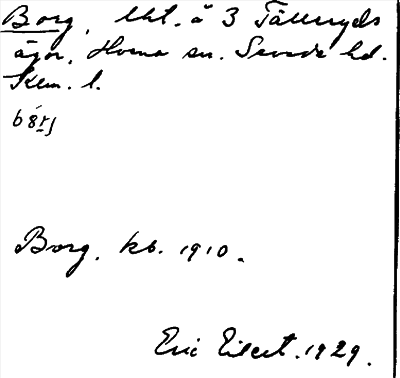 Borg, lht. å 3 Tälleryds
ägor, Hvena sn. Sevede hd.
Kalm. l.
Borg. kb. 1910.
Eric Eilert. 1929.